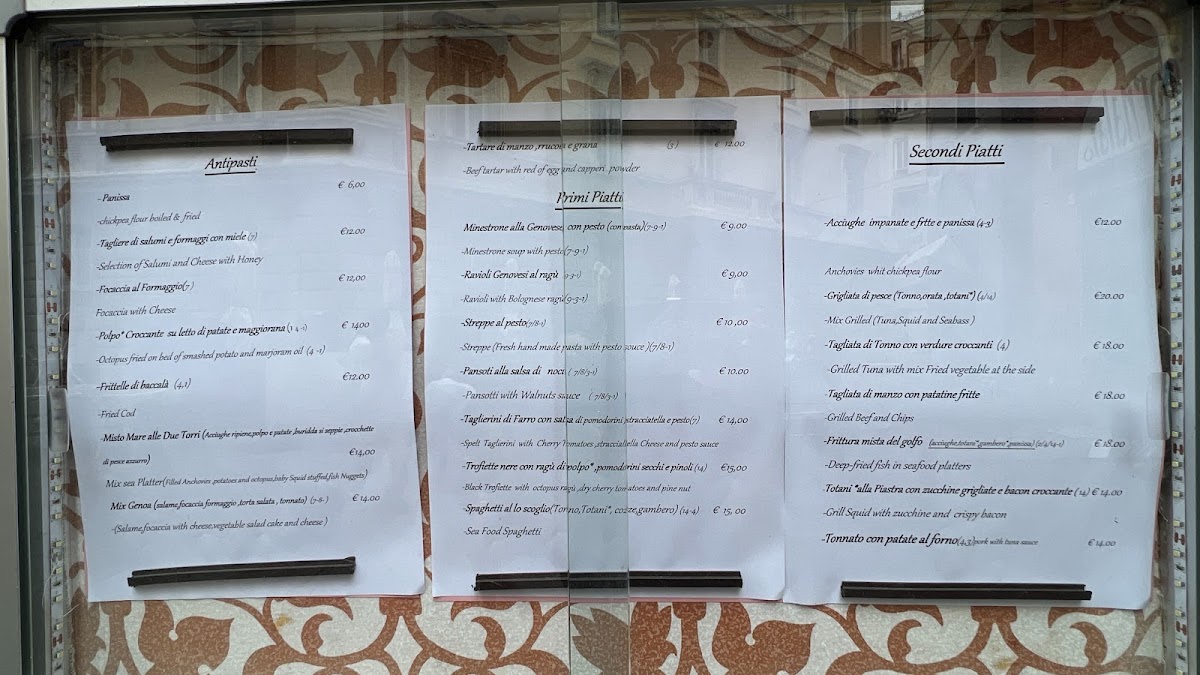 Antipasti
- Panissa € 6,00
-chickpea flour boiled & fried
-Tagliere di salumi e formaggi con miele (7) €12.00
-Selection of Salumi and Cheese with Honey
-Focaccia al Formaggio(7) € 12,00
Focaccia with Cheese
-Polpo* Croccante su letto di patate e maggiorana (1 4 -1) € 1400
-Octopus fried on bed of smashed potato and marjoram oil (4 -1)
-Frittelle di baccalà (4,1) €12.00
-Fried Cod
-Misto Mare alle Due Torri (Acciughe ripiene,polpo e patate ,buridda si seppie ,crocchette
di pesce azzurro) €14,00
Mix sea Platter(Filled Anchovies ,potatoes and octopus,baby Squid stuffed,fish Nuggets)
Mix Genoa (salame,focaccia formaggio ,torta salata , tonnato) (7-8- ) € 14.00
-(Salame,focaccia with cheese,vegetable salad cake and cheese )
-Tartare di manzo ,rrucola e grana (3 ) € 12.00
-Beef tartar with red of egg and capperi powder
Primi Piatti
Minestrone alla Genovese con pesto (con pasta)(7-9-1) € 9.00
-Minestrone soup with pesto(7-9-1)
-Ravioli Genovesi al ragù (9-3-1) € 9,00
-Ravioli with Bolognese ragù(9-3-1)
-Streppe al pesto(7/8-1) € 10 ,00
-Streppe (Fresh hand made pasta with pesto sauce )(7/8-1)
-Pansoti alla salsa di noci ( 7/8/3-1) € 10.00
-Pansotti with Walnuts sauce ( 7/8/3-1)
-Taglierini di Farro con salsa di pomodorini ,stracciatella e pesto(7) € 14,00
-Spelt Taglierini with Cherry Tomatoes ,stracciallella Cheese and pesto sauce
-Trofiette nere con ragù di polpo* ,pomodorini secchi e pinoli (14) €15,00
-Black Trofiette with octopus ragù ,dry cherry tomatoes and pine nut
-Spaghetti al lo scoglio(Tonno,Totani*, cozze,gambero) (14-4) € 15, 00
-Sea Food Spaghetti
Secondi Piatti
-Acciughe impanate e frtte e panissa (4-3) €12.00
Anchovies whit chickpea flour
-Grigliata di pesce (Tonno,orata ,totani*) (4/14) €20.00
-Mix Grilled (Tuna,Squid and Seabass )
-Tagliata di Tonno con verdure croccanti (4) € 18.00
-Grilled Tuna with mix Fried vegetable at the side
-Tagliata di manzo con patatine fritte € 18.00
-Grilled Beef and Chips
-Frittura mista del golfo (acciughe,totani*,gambero*,panissa) € 18.00
-Deep-fried fish in seafood platters
-Totani *alla Piastra con zucchine grigliate e bacon croccante ( 14) € 14.00
-Grill Squid with zucchine and crispy bacon
-Tonnato con patate al forno(4,3)pork with tuna sauce € 14.00